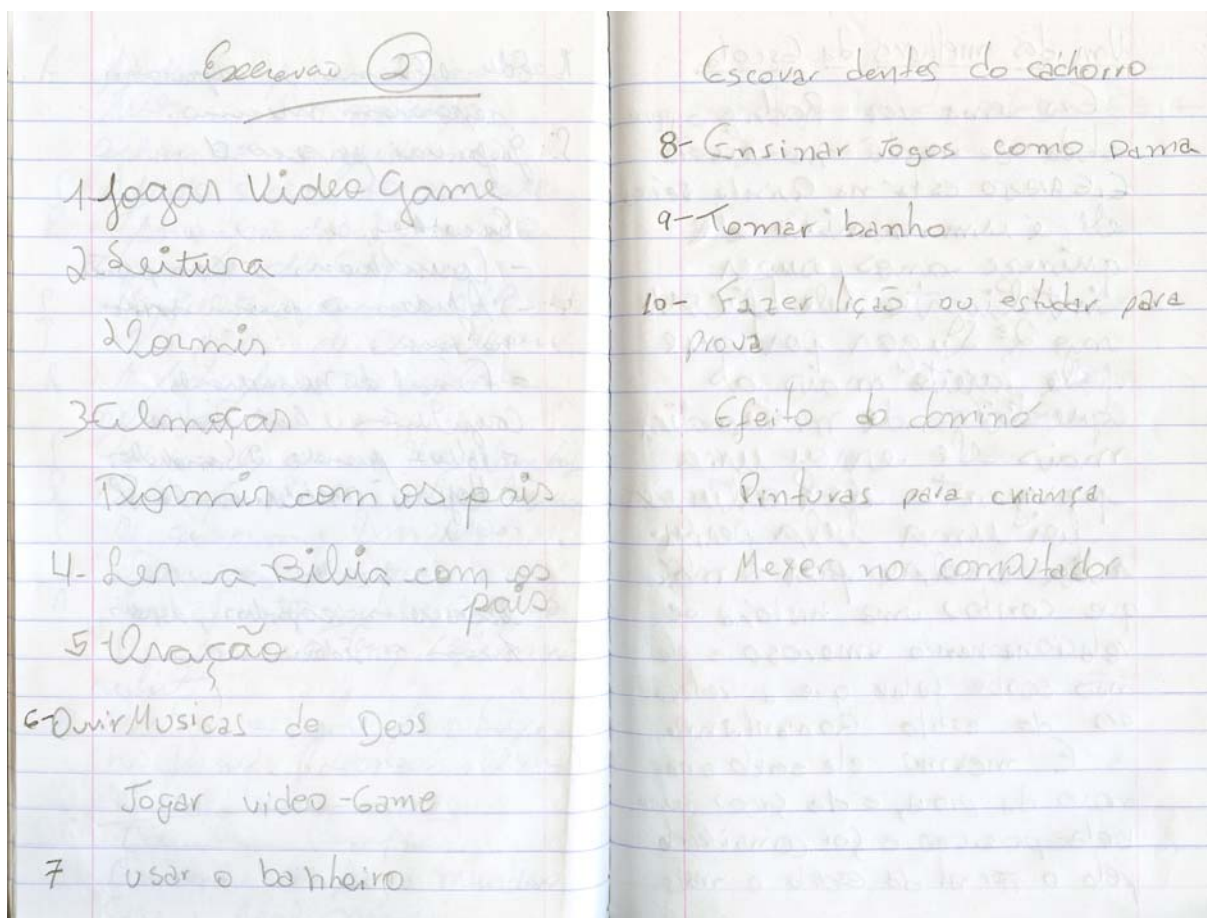 2
1- Jogar Video Game
2 Leitura
Dormir
3- Almoçar
Dormir com os pais
4- Ler a Biblia com os
pais
5- Oração
6- Ouvir Musicas de Deus
Jogar video-Game
7 usar o banheiro
Escovar dentes do cachorro
8- Ensinar Jogos como Dama
9- Tomar banho
10- Fazer lição ou estudar para
prova
Efeito do dominó
Pinturas para criança
Mexer no computador